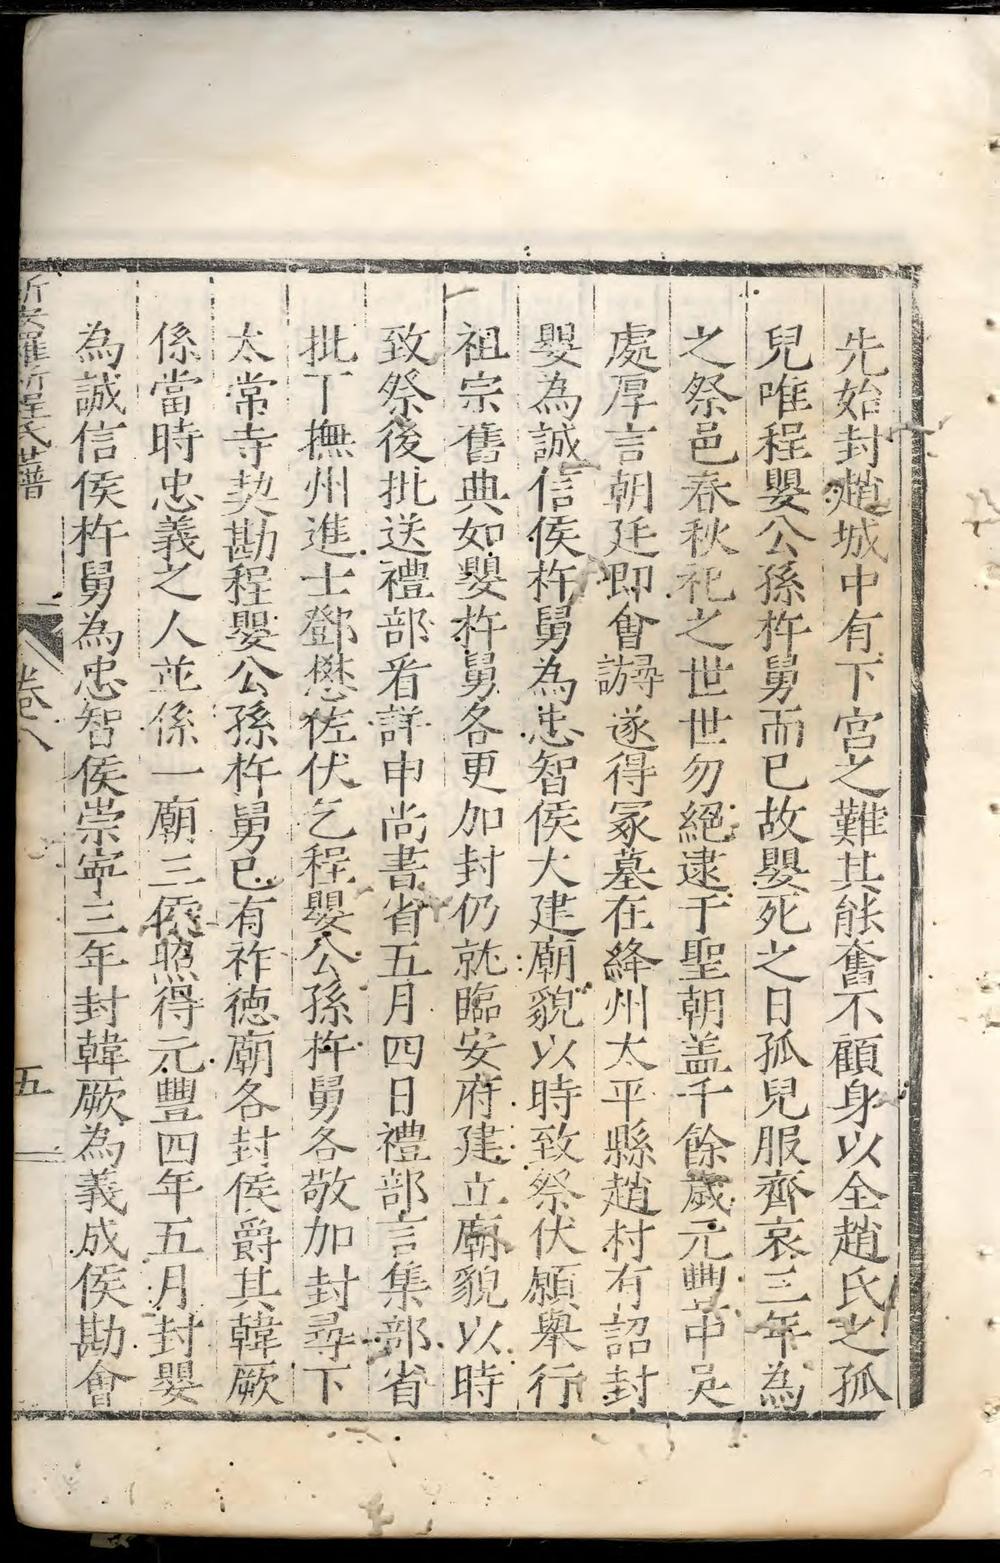 先始封趙城中有下宮之難其能奮不顧身以全趙氏之孤
兒唯程嬰公孫杵舅而已故嬰死之日孤兒服齊哀三年為
之祭邑春秋祀之世世勿絕逮于聖朝盖千餘歲元豐中吳
處厚言朝廷即會訪尋遂得冢墓在絳州太平縣趙村有詔封
嬰為誠信侯杵舅為忠智侯大建廟貌以時致祭伏願舉行
祖宗舊典如嬰杵舅各更加封仍就臨安府建立廟貌以時
致祭後批送禮部看詳申尚書省五月四日禮部言集部省
批丁撫州進士鄧懋佐伏乞程嬰公孫杵舅各敬加封尋下
太常寺契勘程嬰公孫杵舅已有祚德廟各封侯爵其韓厥
係當時忠義之人並係一廟三侯照得元豐四年五月封嬰
為誠信侯杵舅為忠智侯崇寧三年封韓厥為義成侯勘會
新安羅祈程氏譜
卷八
五